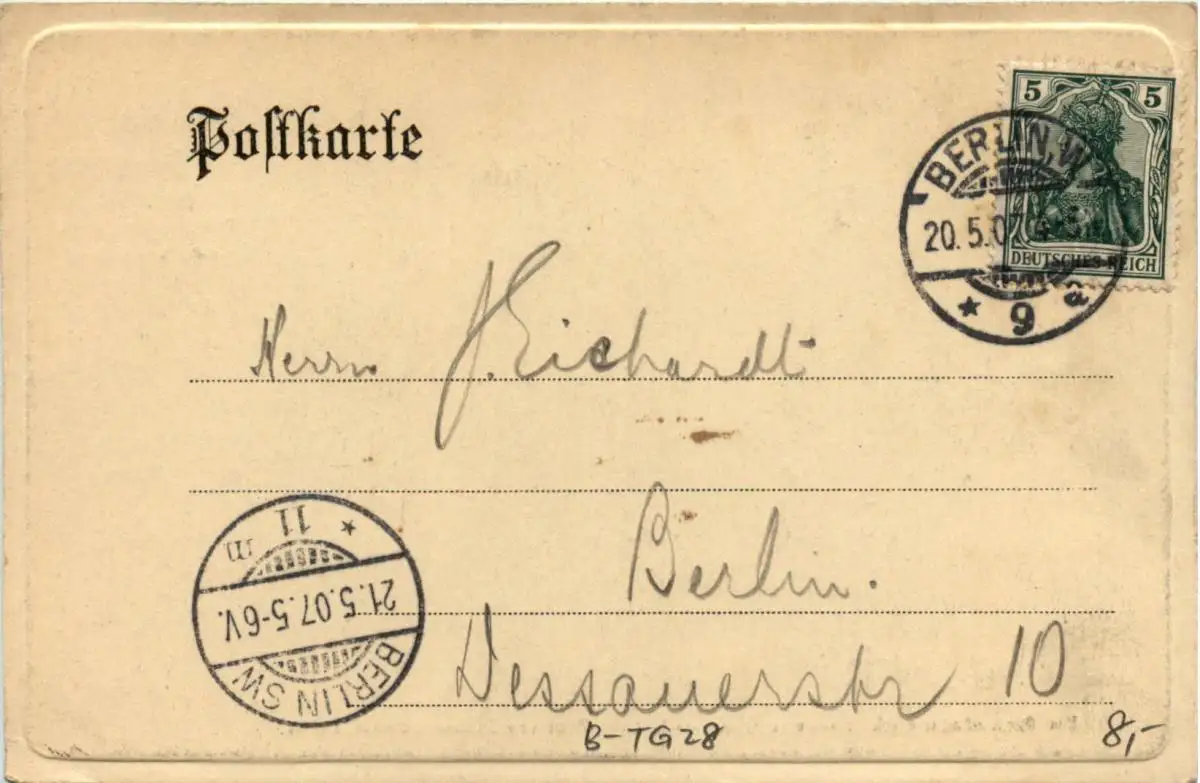 Postkarte
5 5
DEUTSCHES REICH
BERLIN, W
20.5.07. 4-5
* 9 a
Herrn J. Eichardt
Berlin.
Dessauerstr 10
BERLIN SW
21.5.07. 5-6V.
* 11 m
B-TG28
8,-